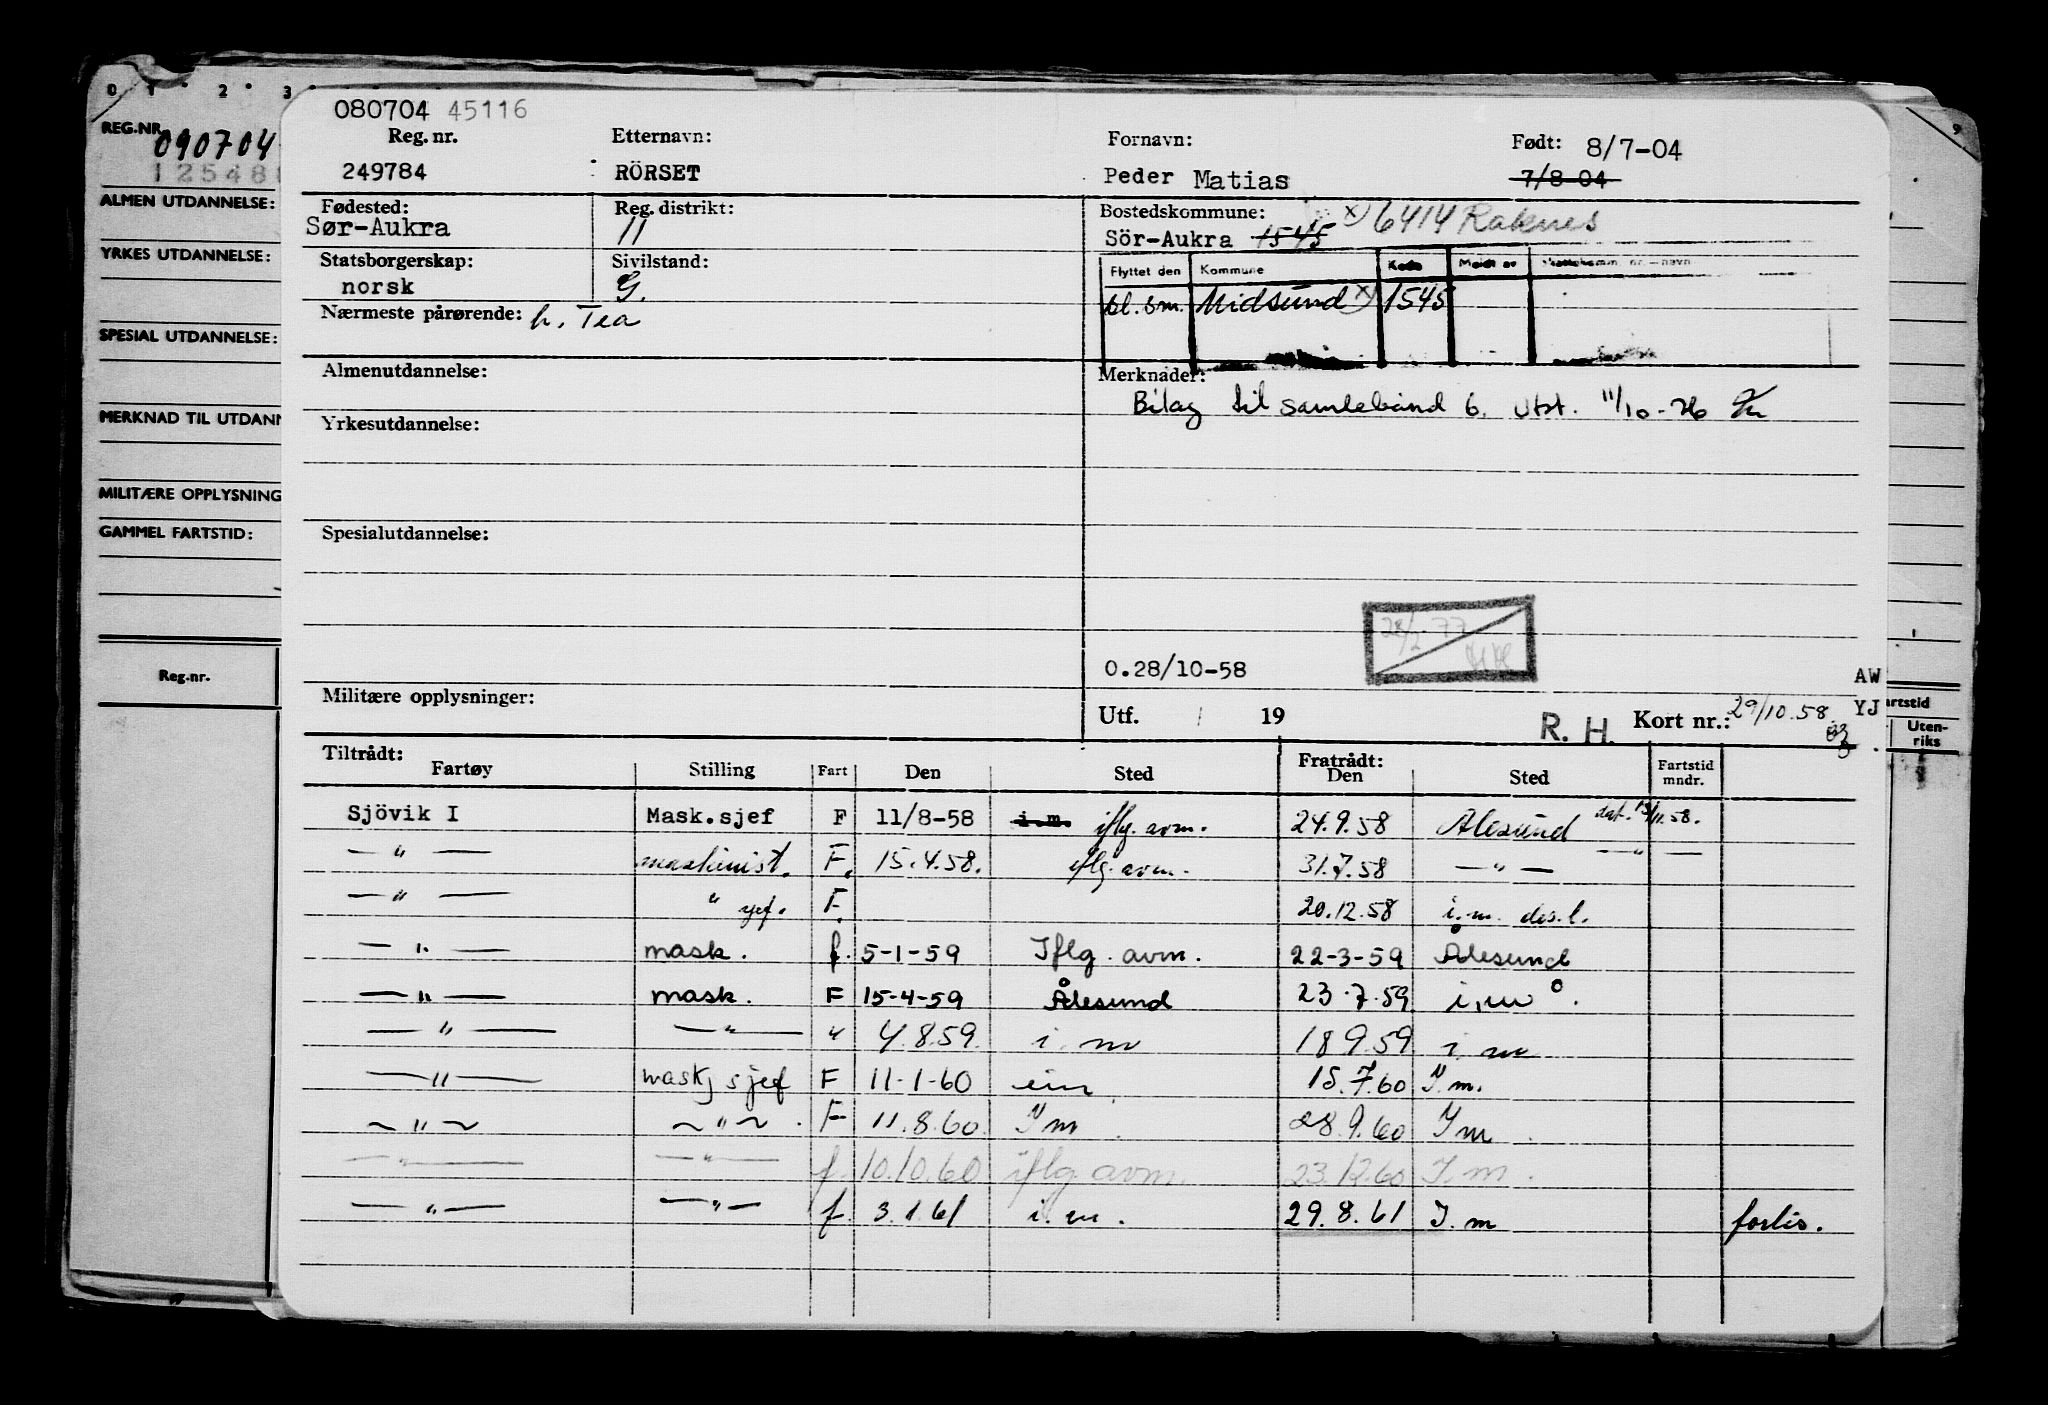 0 1 2 3 9
REG.NR.
090704
12548
ALMEN UTDANNELSE:
YRKES UTDANNELSE:
SPESIAL UTDANNELSE:
MERKNAD TIL UTDANN
MILITÆRE OPPLYSNING
GAMMEL FARTSTID:
Reg.nr.
080704 45116
Reg. nr. Etternavn: Fornavn: Født: 8/7-04
249784 RÖRSET Peder Matias 7/8-04
Fødested: Reg. distrikt: Bostedskommune: x) 6414 Raknes
Sør-Aukra 11 Sör-Aukra 1545
Statsborgerskap: Sivilstand: Flyttet den Kommune Kode Meldt av Skattekomm. nr. - navn
norsk G. bl. sm. Midsund x) 1545
Nærmeste pårørende: h. Tea
Almenutdannelse: Merknader:
Bilag til samlebånd 6. utst. 11/10-76
Yrkesutdannelse:
Spesialutdannelse:
28/2 77
0.28/10-58 AW
Militære opplysninger: Utf. 19 R. H. Kort nr.: 29/10.58. YJ
artstid
Uten-
riks
Tiltrådt: Fratrådt:
Fartøy Stilling Fart Den Sted Den Sted Fartstid mndr.
Sjövik I Mask.sjef F 11/8-58 i.m. iflg. avm. 24.9.58 Ålesund dat. 13/11.58.
— " — maskinist. F. 15.4.58. iflg. avm. 31.7.58 — " — — " —
— " — " sjef. F. 20.12.58 i.m. des.l.
— " — mask. f. 5-1-59 Iflg. avm. 22-3-59 Ålesund
— " — mask. F 15-4-59 Ålesund 23.7.59 i.m.
— " — — " — " 4.8.59. i. m 18 9.59 i. m
— " — maskj sjef F 11-1-60 eim 15.7.60 I.m.
— " — — " — . F 11.8.60. I m . 28.9.60 I m .
— " — — " — f. 10.10.60 iflg avm. 23.12.60 I. m .
— " — — " — f. 3.1.61 i. m . 29.8.61 I. m forlis.